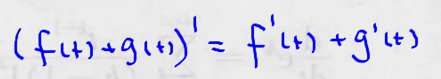 (f(t)+g(t))' = f'(t) + g'(t)